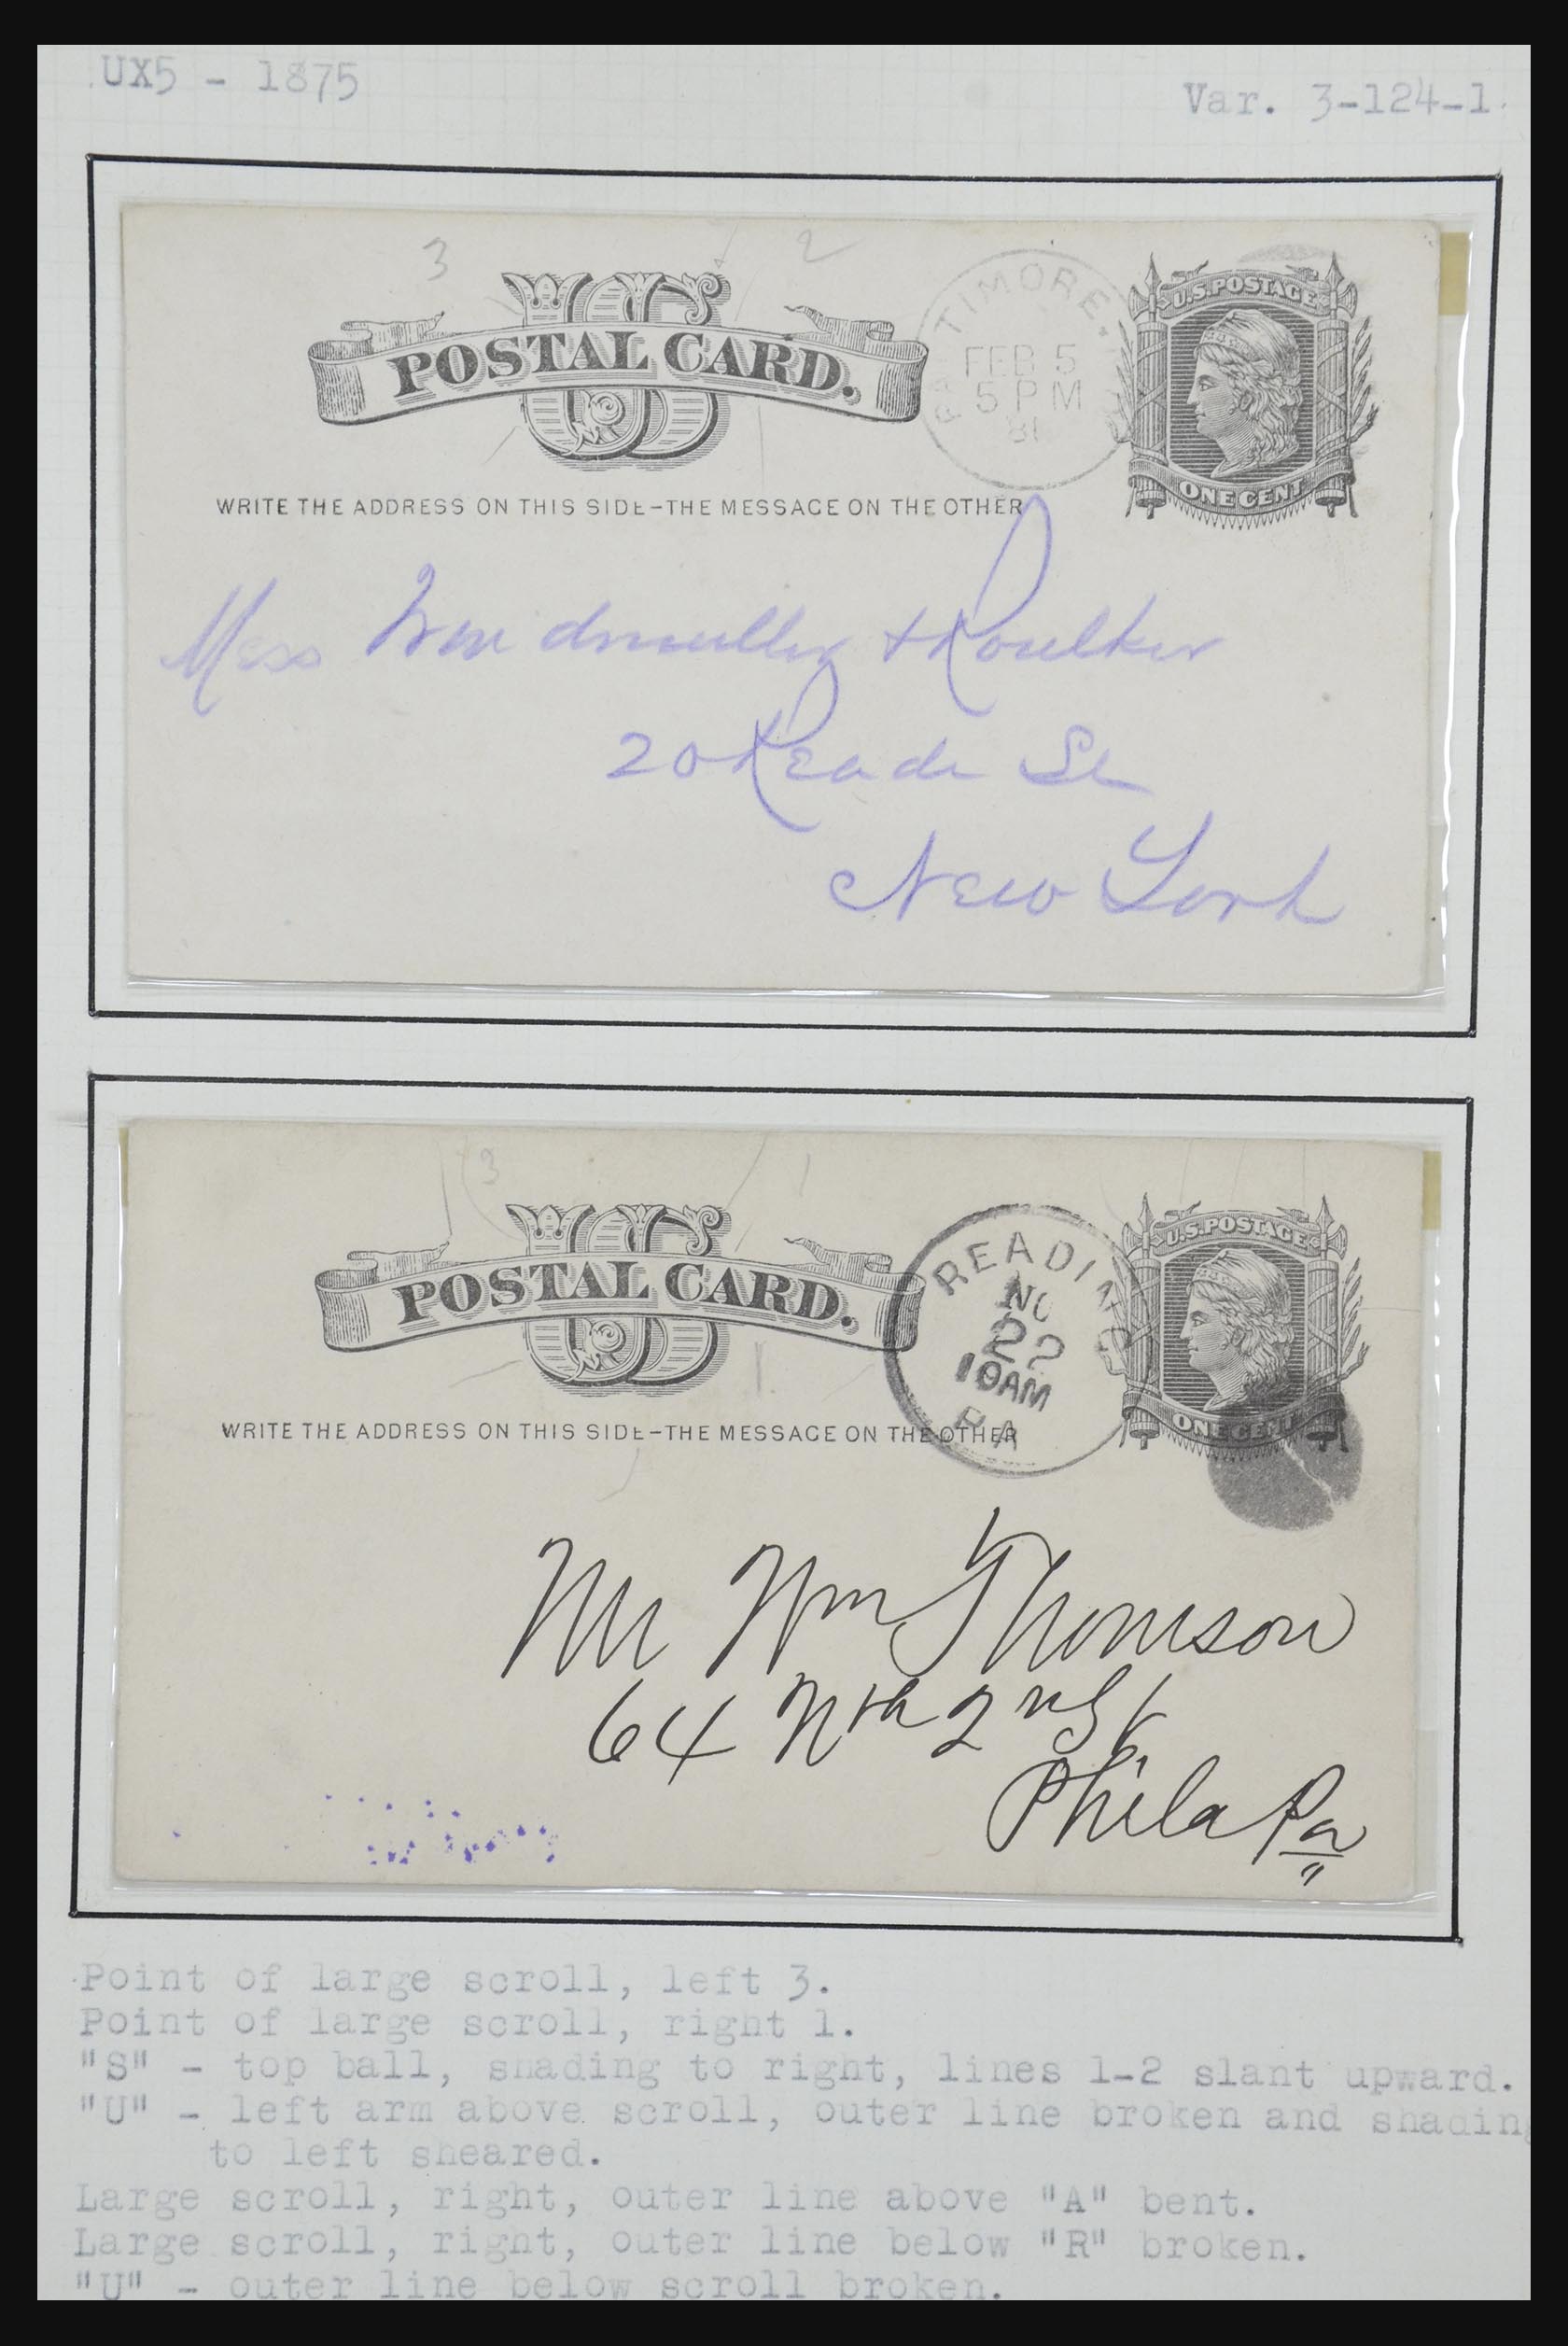 UX5 - 1875
Var. 3-124-1.
3
2
US
POSTAL CARD.
TIMORE.
FEB 5
5 PM
81
U.S. POSTAGE
ONE CENT
WRITE THE ADDRESS ON THIS SIDE-THE MESSAGE ON THE OTHER
Mess
20 Reade St
New York
3
1
US
POSTAL CARD.
READING
NO
22
10AM
PA
U.S. POSTAGE
ONE CENT
WRITE THE ADDRESS ON THIS SIDE-THE MESSAGE ON THE OTHER
Mr Wm Thomson
64 Nth 2nd St
Phila Pa
Point of large scroll, left 3.
Point of large scroll, right 1.
"S" - top ball, shading to right, lines 1-2 slant upward.
"U" - left arm above scroll, outer line broken and shading
to left sheared.
Large scroll, right, outer line above "A" bent.
Large scroll, right, outer line below "R" broken.
"U" - outer line below scroll broken.